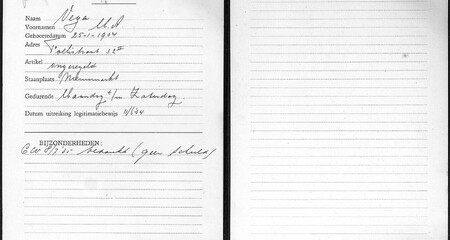 Naam Vega
Voornamen M.A
Geboortedatum 25-1-1904
Adres Tolstraat 32 II
Artikel ongeregeld
Staanplaats Nieuwmarkt
Gedurende Maandag t/m Zaterdag.
Datum uitreiking legitimatiebewijs
BIJZONDERHEDEN:
bedankt (geen schuld)